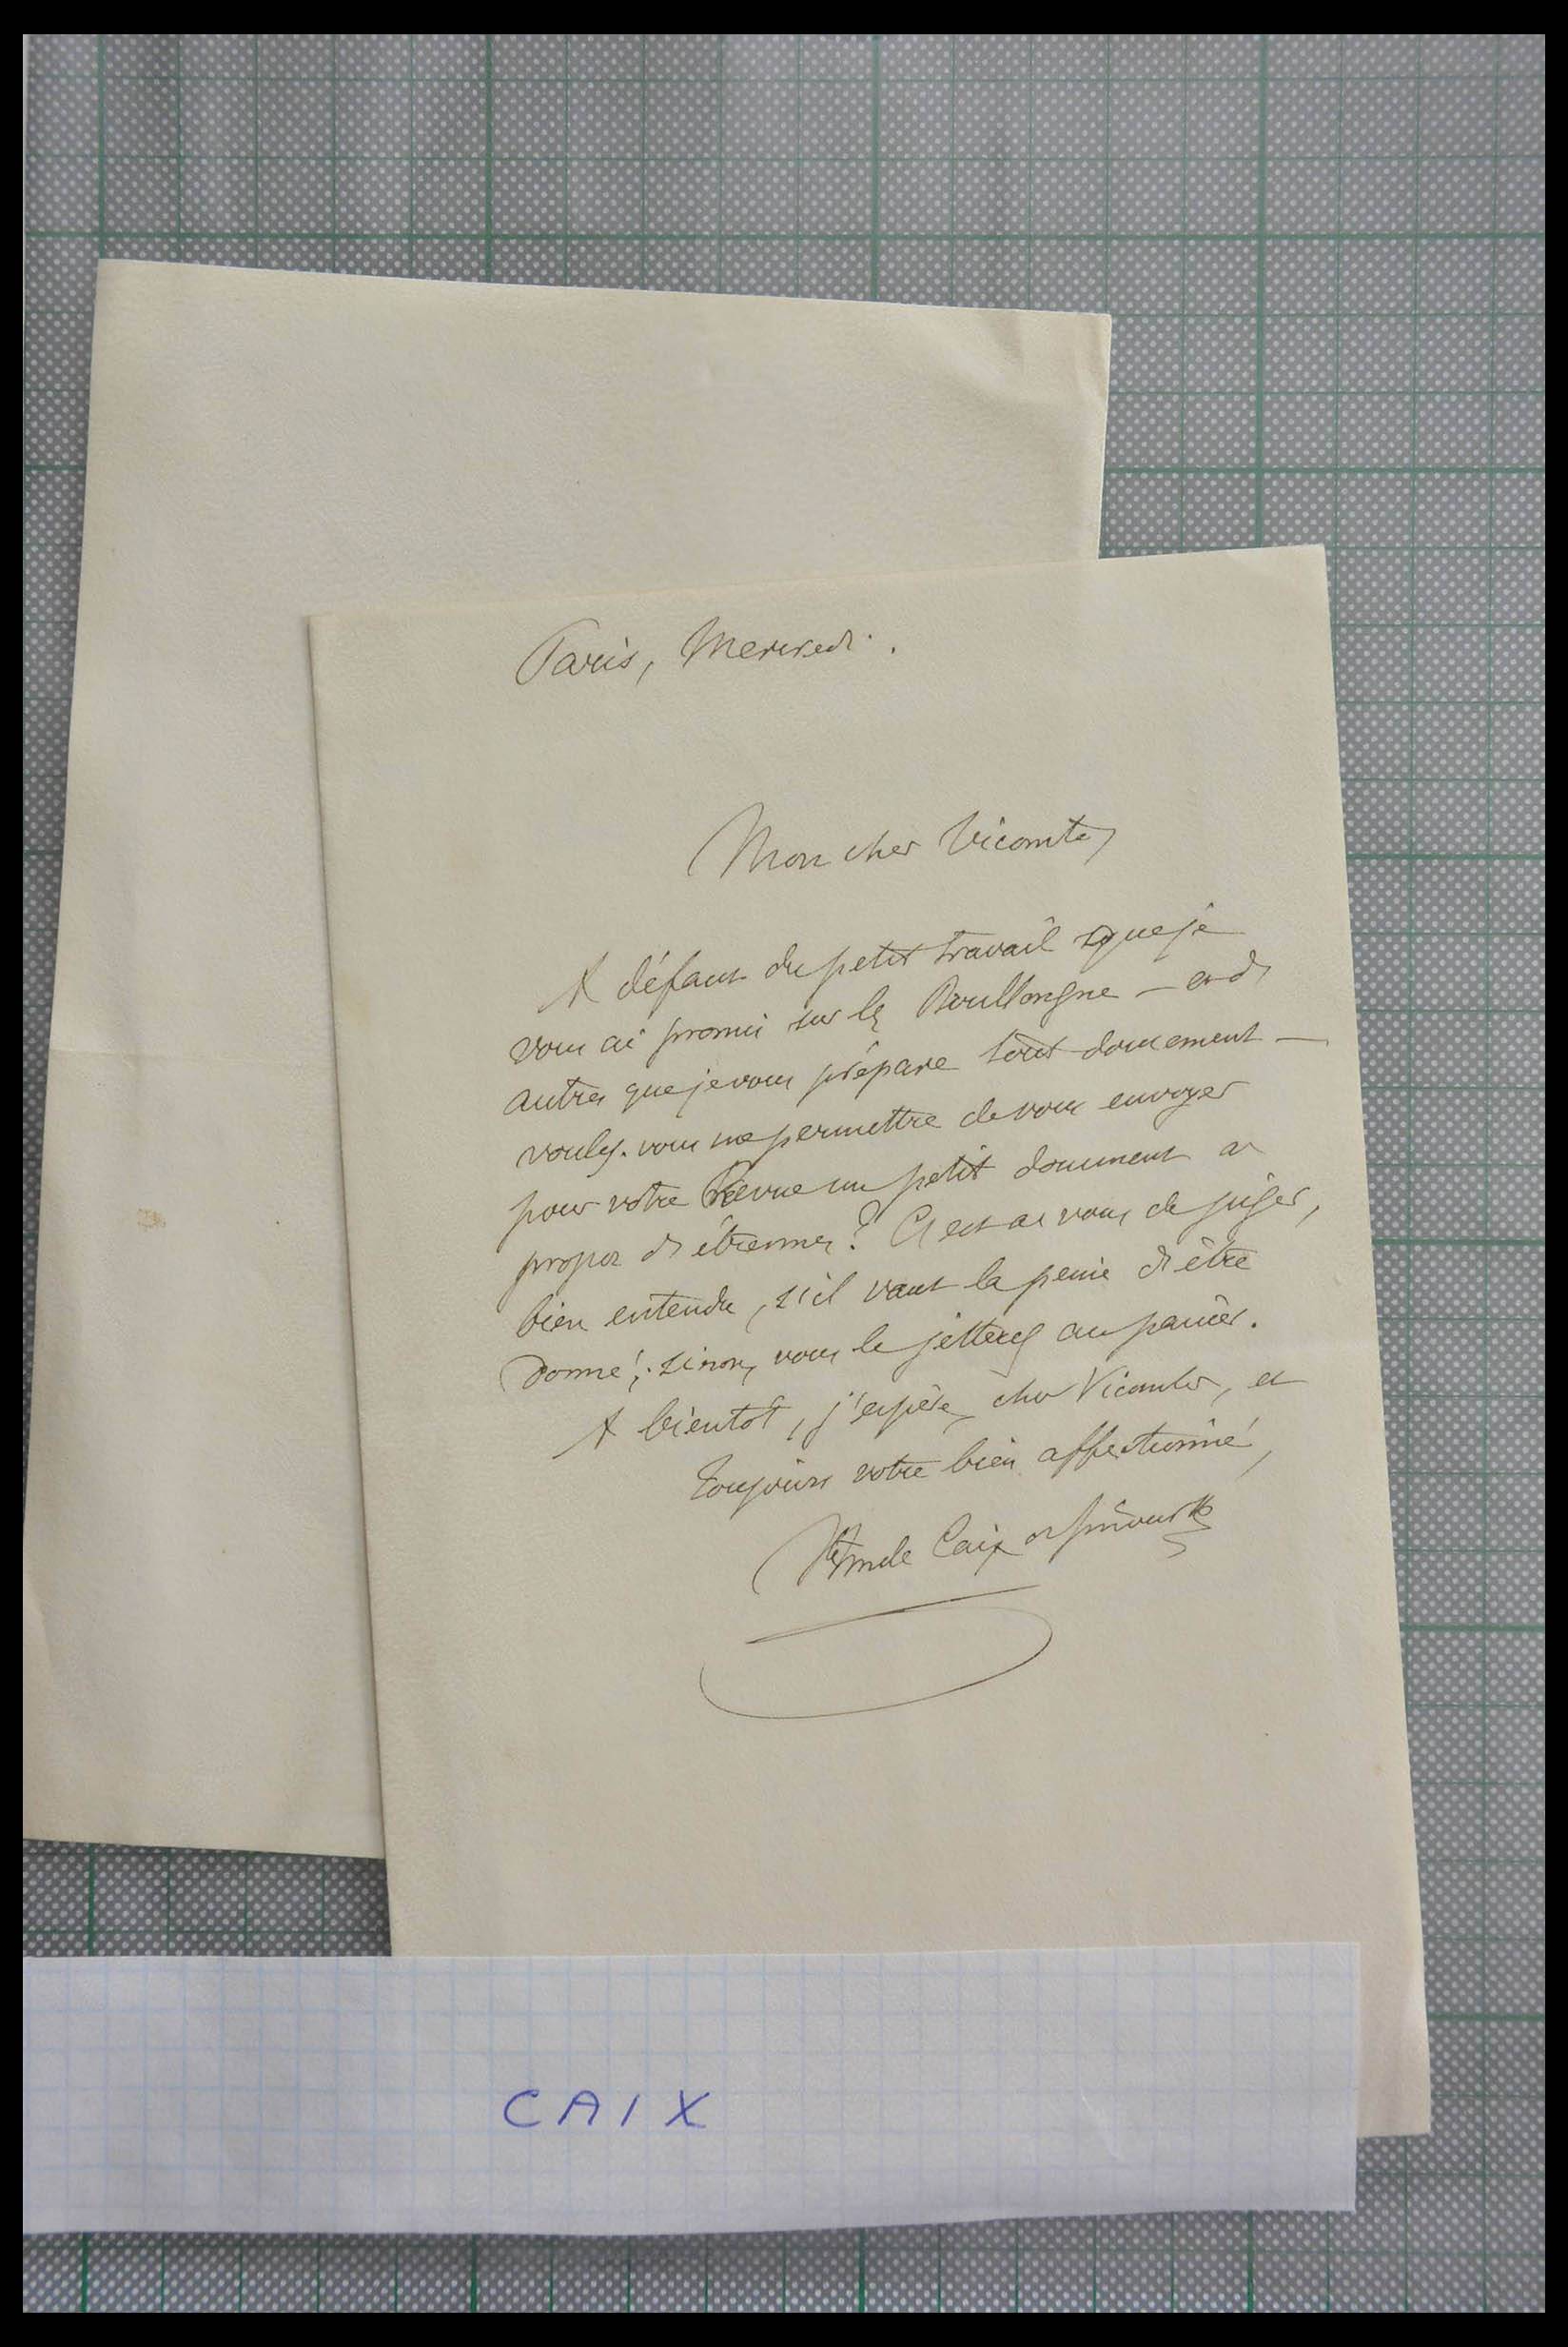 Paris, Mercredi.
Mon cher Vicomte,
A défaut du petit travail que je
vous ai promis sur les Boullongne — et d'
autres que je vous prépare tout doucement —
voulez-vous me permettre de vous envoyer
pour votre Revue un petit document à
propos d'étrennes? C'est à vous de juger,
bien entendu, s'il vaut la peine d'être
donné; sinon, vous le jetterez au panier.
A bientôt, j'espère, cher Vicomte, et
toujours votre bien affectionné,
de Caix de
CAIX